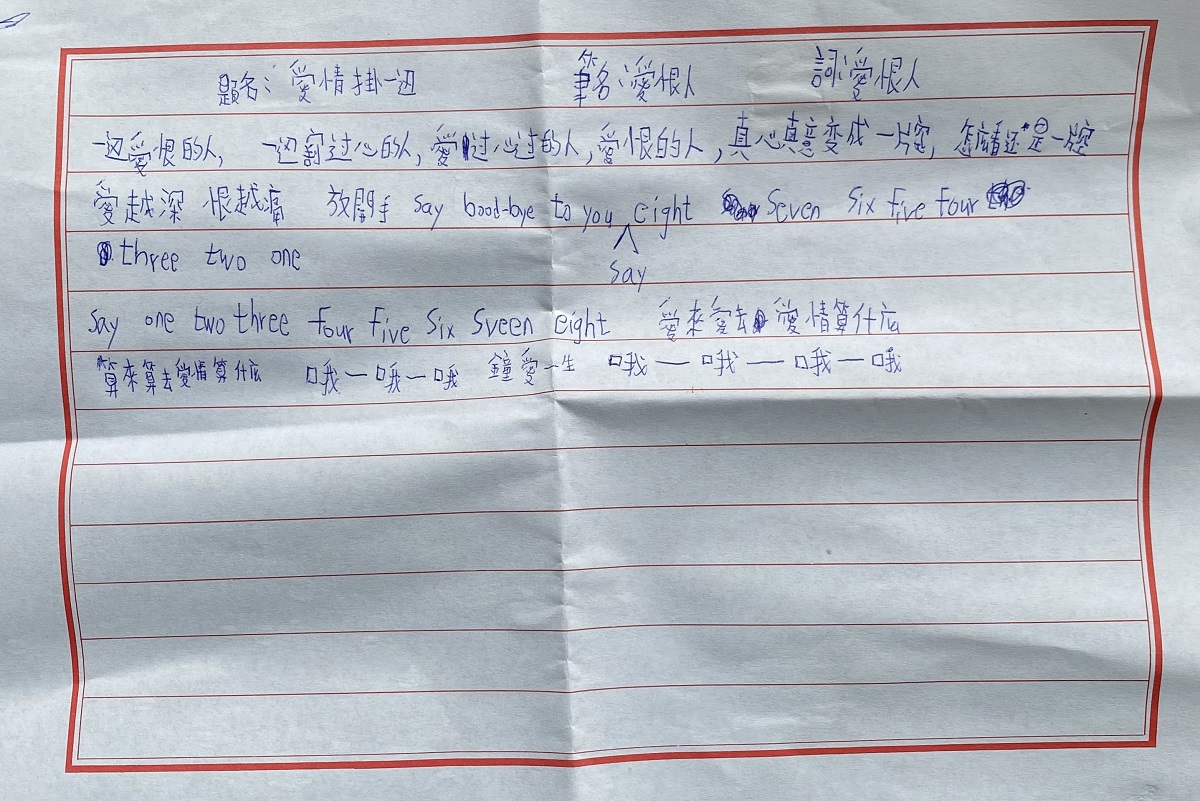 題名：愛情掛一边 筆名：愛恨人 詞：愛恨人
一边愛恨的人， 一边割过心的人，愛过心过的人，愛恨的人，真心真意变成一片空，怎麼看还是一片空
愛越深 恨越痛 放開手 say bood-bye to you say eight seven six five four
three two one
say one two three four five six sveen eight 愛來愛去 愛情算什底
算來算去愛情算什底 哦一哦一哦 鐘愛一生 哦一哦一哦一哦